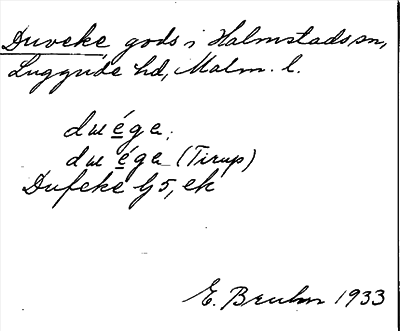 Duveke, gods i Halmstads sn,
Luggude hd, Malm. l.
duéga;
duéga (Tirup)
Dufeke G5, ek
E. Bruhn 1933